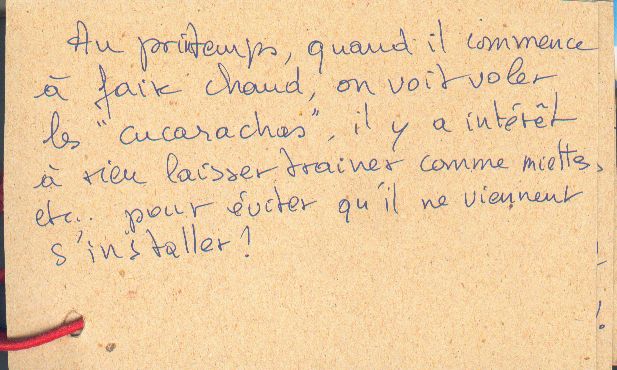 Au printemps, quand il commence
à faire chaud, on voit voler
les "cucarachas", il y a intérêt
à rien laisser trainer comme miettes,
etc.. pour éviter qu'il ne viennent
s'installer!